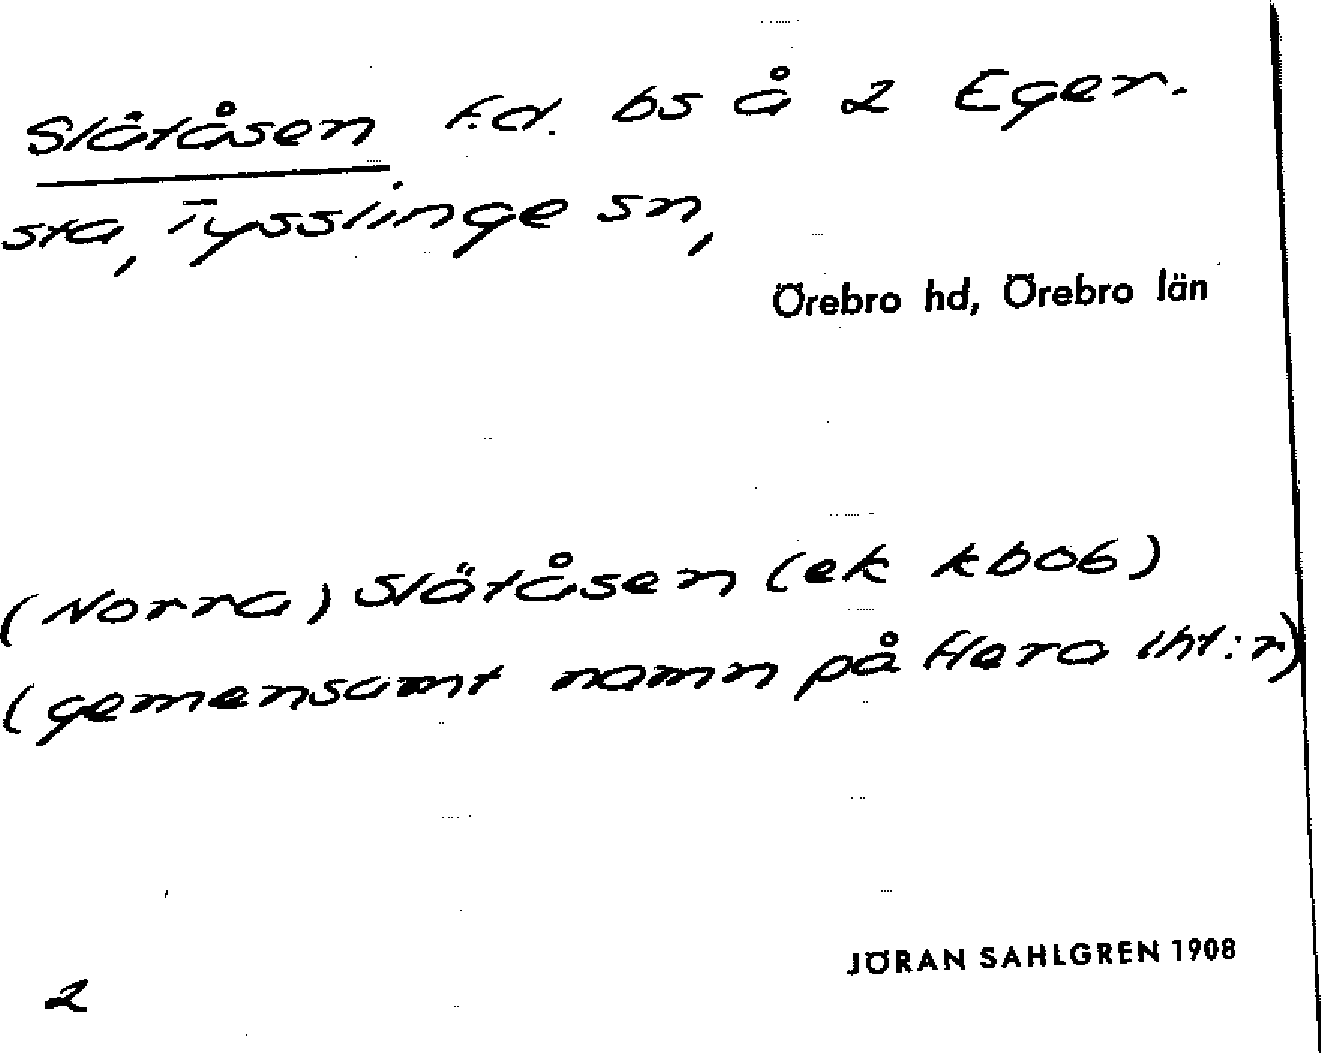 Slätåsen f.d. bs å 2 Eger-
sta, Tysslinge sn,
Örebro hd, Örebro län
(Norra) Slätåsen (ek kbob)
(gemensamt namn på flera lht:r)
JÖRAN SAHLGREN 1908
2